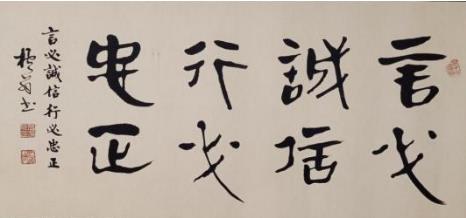 言必
誠信
行必
忠正
言必誠信行必忠正